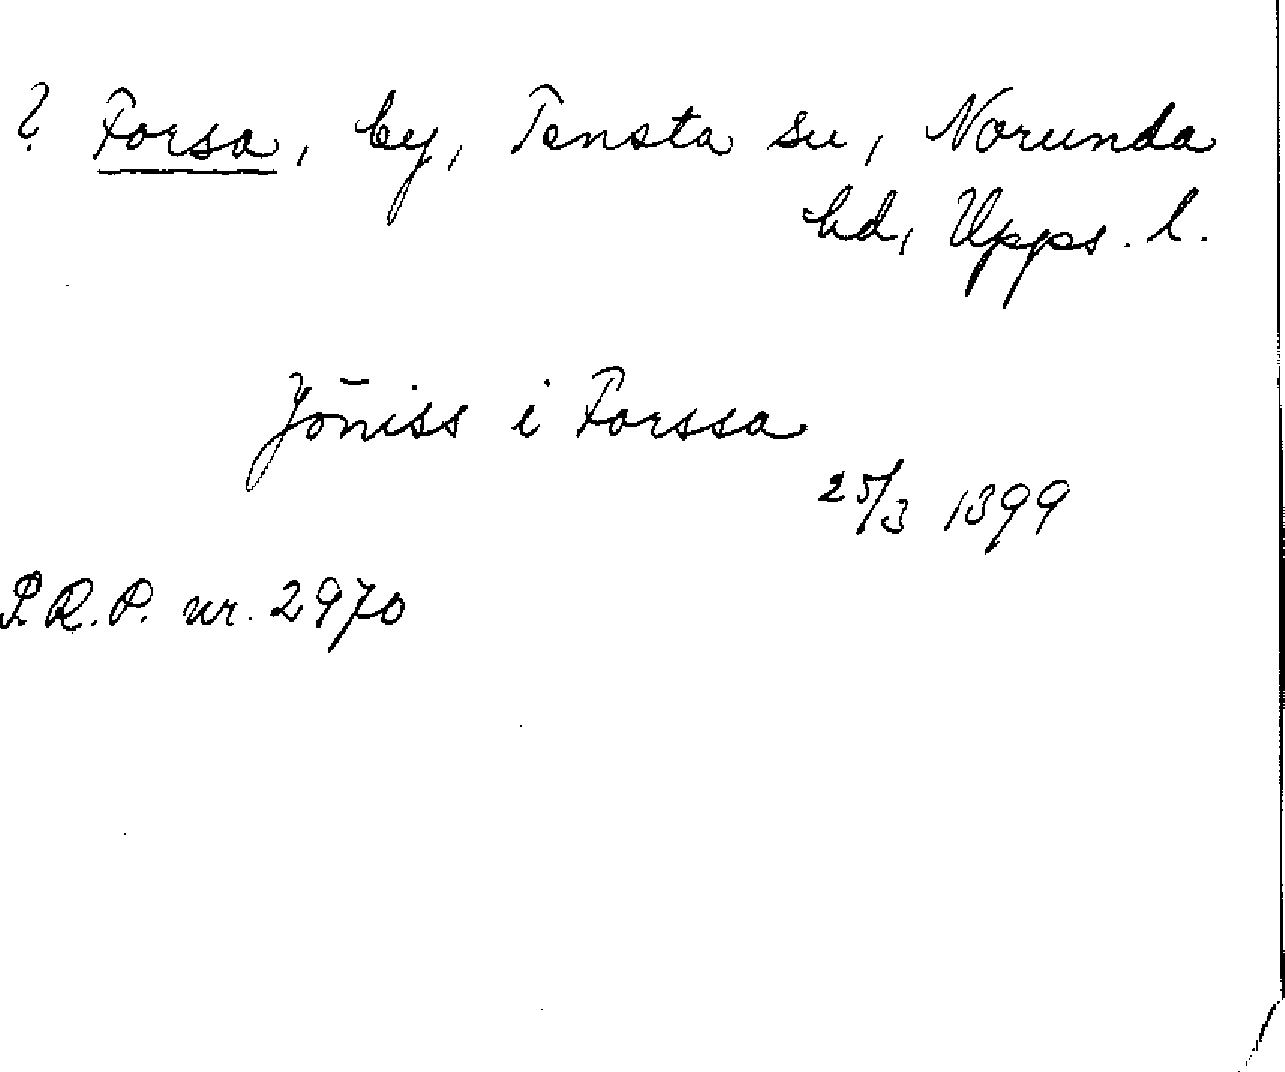 ? Forsa, by, Tensta sn, Norunda
hd, Upps. l.
Jōniss i Forssa
25/3 1399
S.R.P. nr. 2970